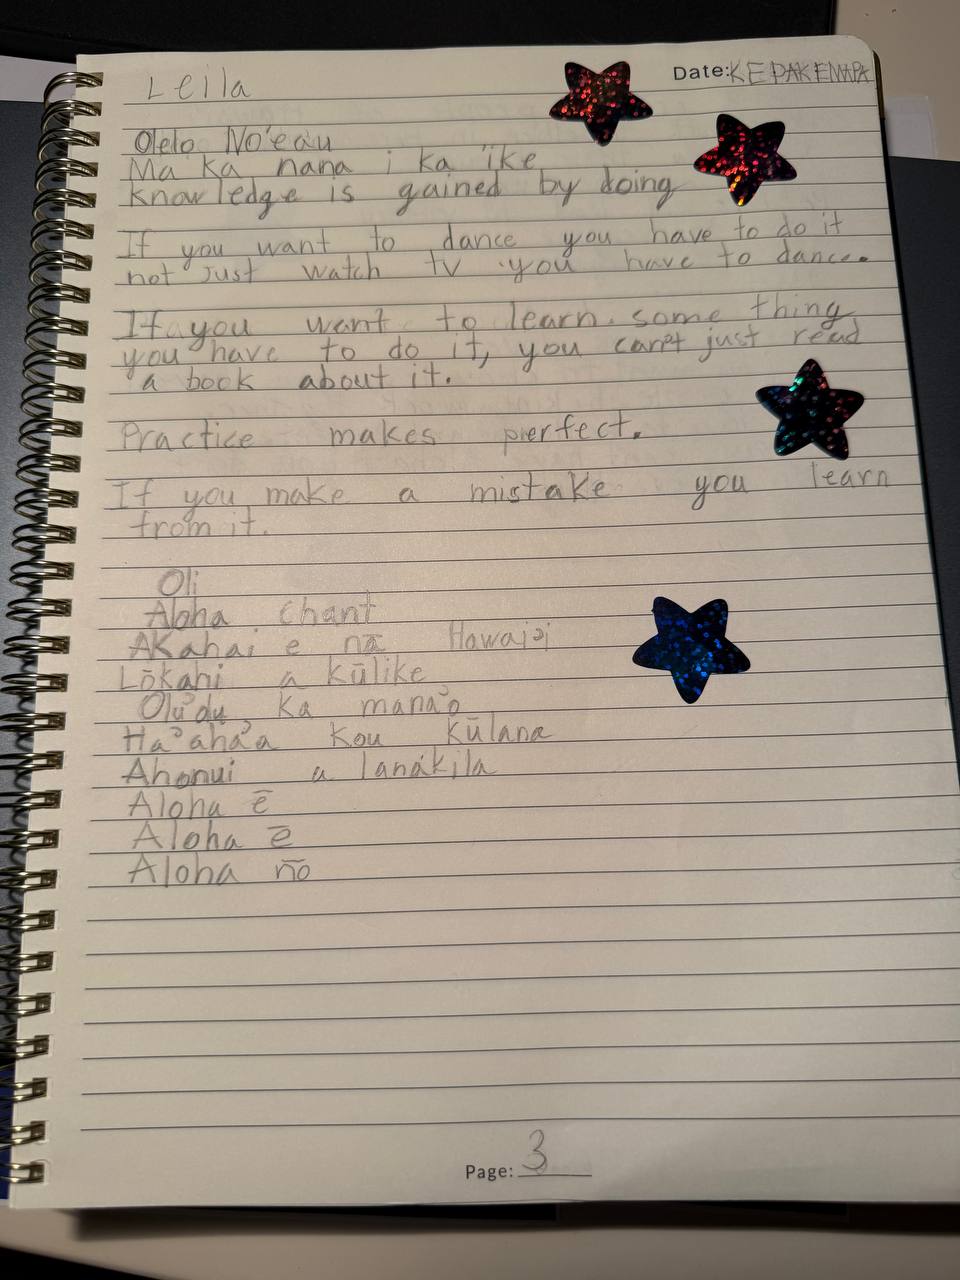 Leila
Date: KEPAKEMAPA
Olelo No'eau
Ma ka nana i ka 'ike
Knowledge is gained by doing
If you want to dance you have to do it
not just watch tv you have to dance.
If you want to learn some thing
you have to do it, you can't just read
a book about it.
Practice makes perfect.
If you make a mistake you learn
from it.
Oli
Aloha chant
AKahai e nā Hawai'i
Lōkahi a kūlike
Olu'olu ka mana'o
Ha'aha'a kou kūlana
Ahonui a lanákila
Aloha ē
Aloha ē
Aloha nō
Page: 3